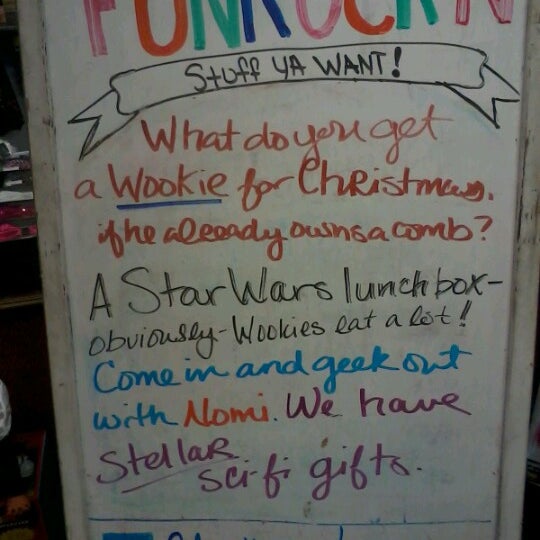 FUNROCK'N
Stuff YA WANT!
What do you get
a Wookie for Christmas,
if he already owns a comb?
A Star Wars lunchbox-
obviously-Wookies eat a lot!
Come in and geek out
with Nomi. We have
Stellar
sci-fi gifts.